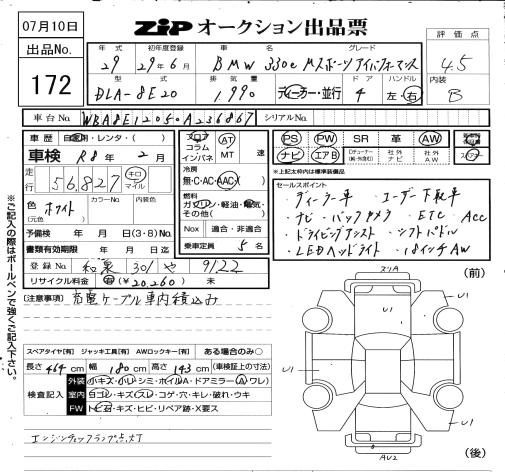 07月10日
ZIP オークション出品票
出品店No.
172
評価点
4.5
内装
B
年式 初年度登録 車名 グレード
29 29年6月 BMW 330e Mスポーツ アイパフォーマンス
型式 排気量 ドア ハンドル
DLA-8E20 1,990 ディーラー・並行 4 左・右
車台No. WBA8E12050A236867 シリアルNo.
車歴 自家用・レンタ・( )
車検 R8年2月
走行 56,827 キロ マイル
色 (元色) ホワイト カラーNo. 内装色
予備検 年 月 日(3・8)No.
書類有効期限 年 月 日迄
登録No. 和泉 301 や 9122
リサイクル料金 有(¥20,260) 未
フロア コラム インパネ
AT MT 速
冷房
無・C・AC・AAC
燃料
ガソリン・軽油・電気・その他( )
Nox 適合・非適合
乗車定員 5名
PS PW SR 革 AW
ナビ エアB 社外ナビ 社外AW
*上記太枠内は標準装備品
セールスポイント
・ディーラー車 ・ユーザー下取車
・ナビ・バックカメラ ・ETC ・ACC
・ドライビングアシスト ・シフトパドル
・LEDヘッドライト ・18インチAW
※ご記入の際はボールペンで強くご記入下さい。
[注意事項] 蓄電ケーブル車内積込み
スペアタイヤ[有] ジャッキ工具[有] AWロックキー[有] ある場合のみ○
長さ 464 cm 幅 180 cm 高さ 143 cm (車検証上の寸法)
検査記入
外装 小キズ・小凹・シミ・ホイルA・ドアミラー(A ワレ)
室内 ヨゴレ・キズ・スレ・コゲ・穴・キレ・破れ・ウキ
FW トビ石・キズ・ヒビ・リペア跡・X要ス
エンジンチェックランプ点灯
スリA
(前)
U1
U1
U1
U1
AU2
(後)